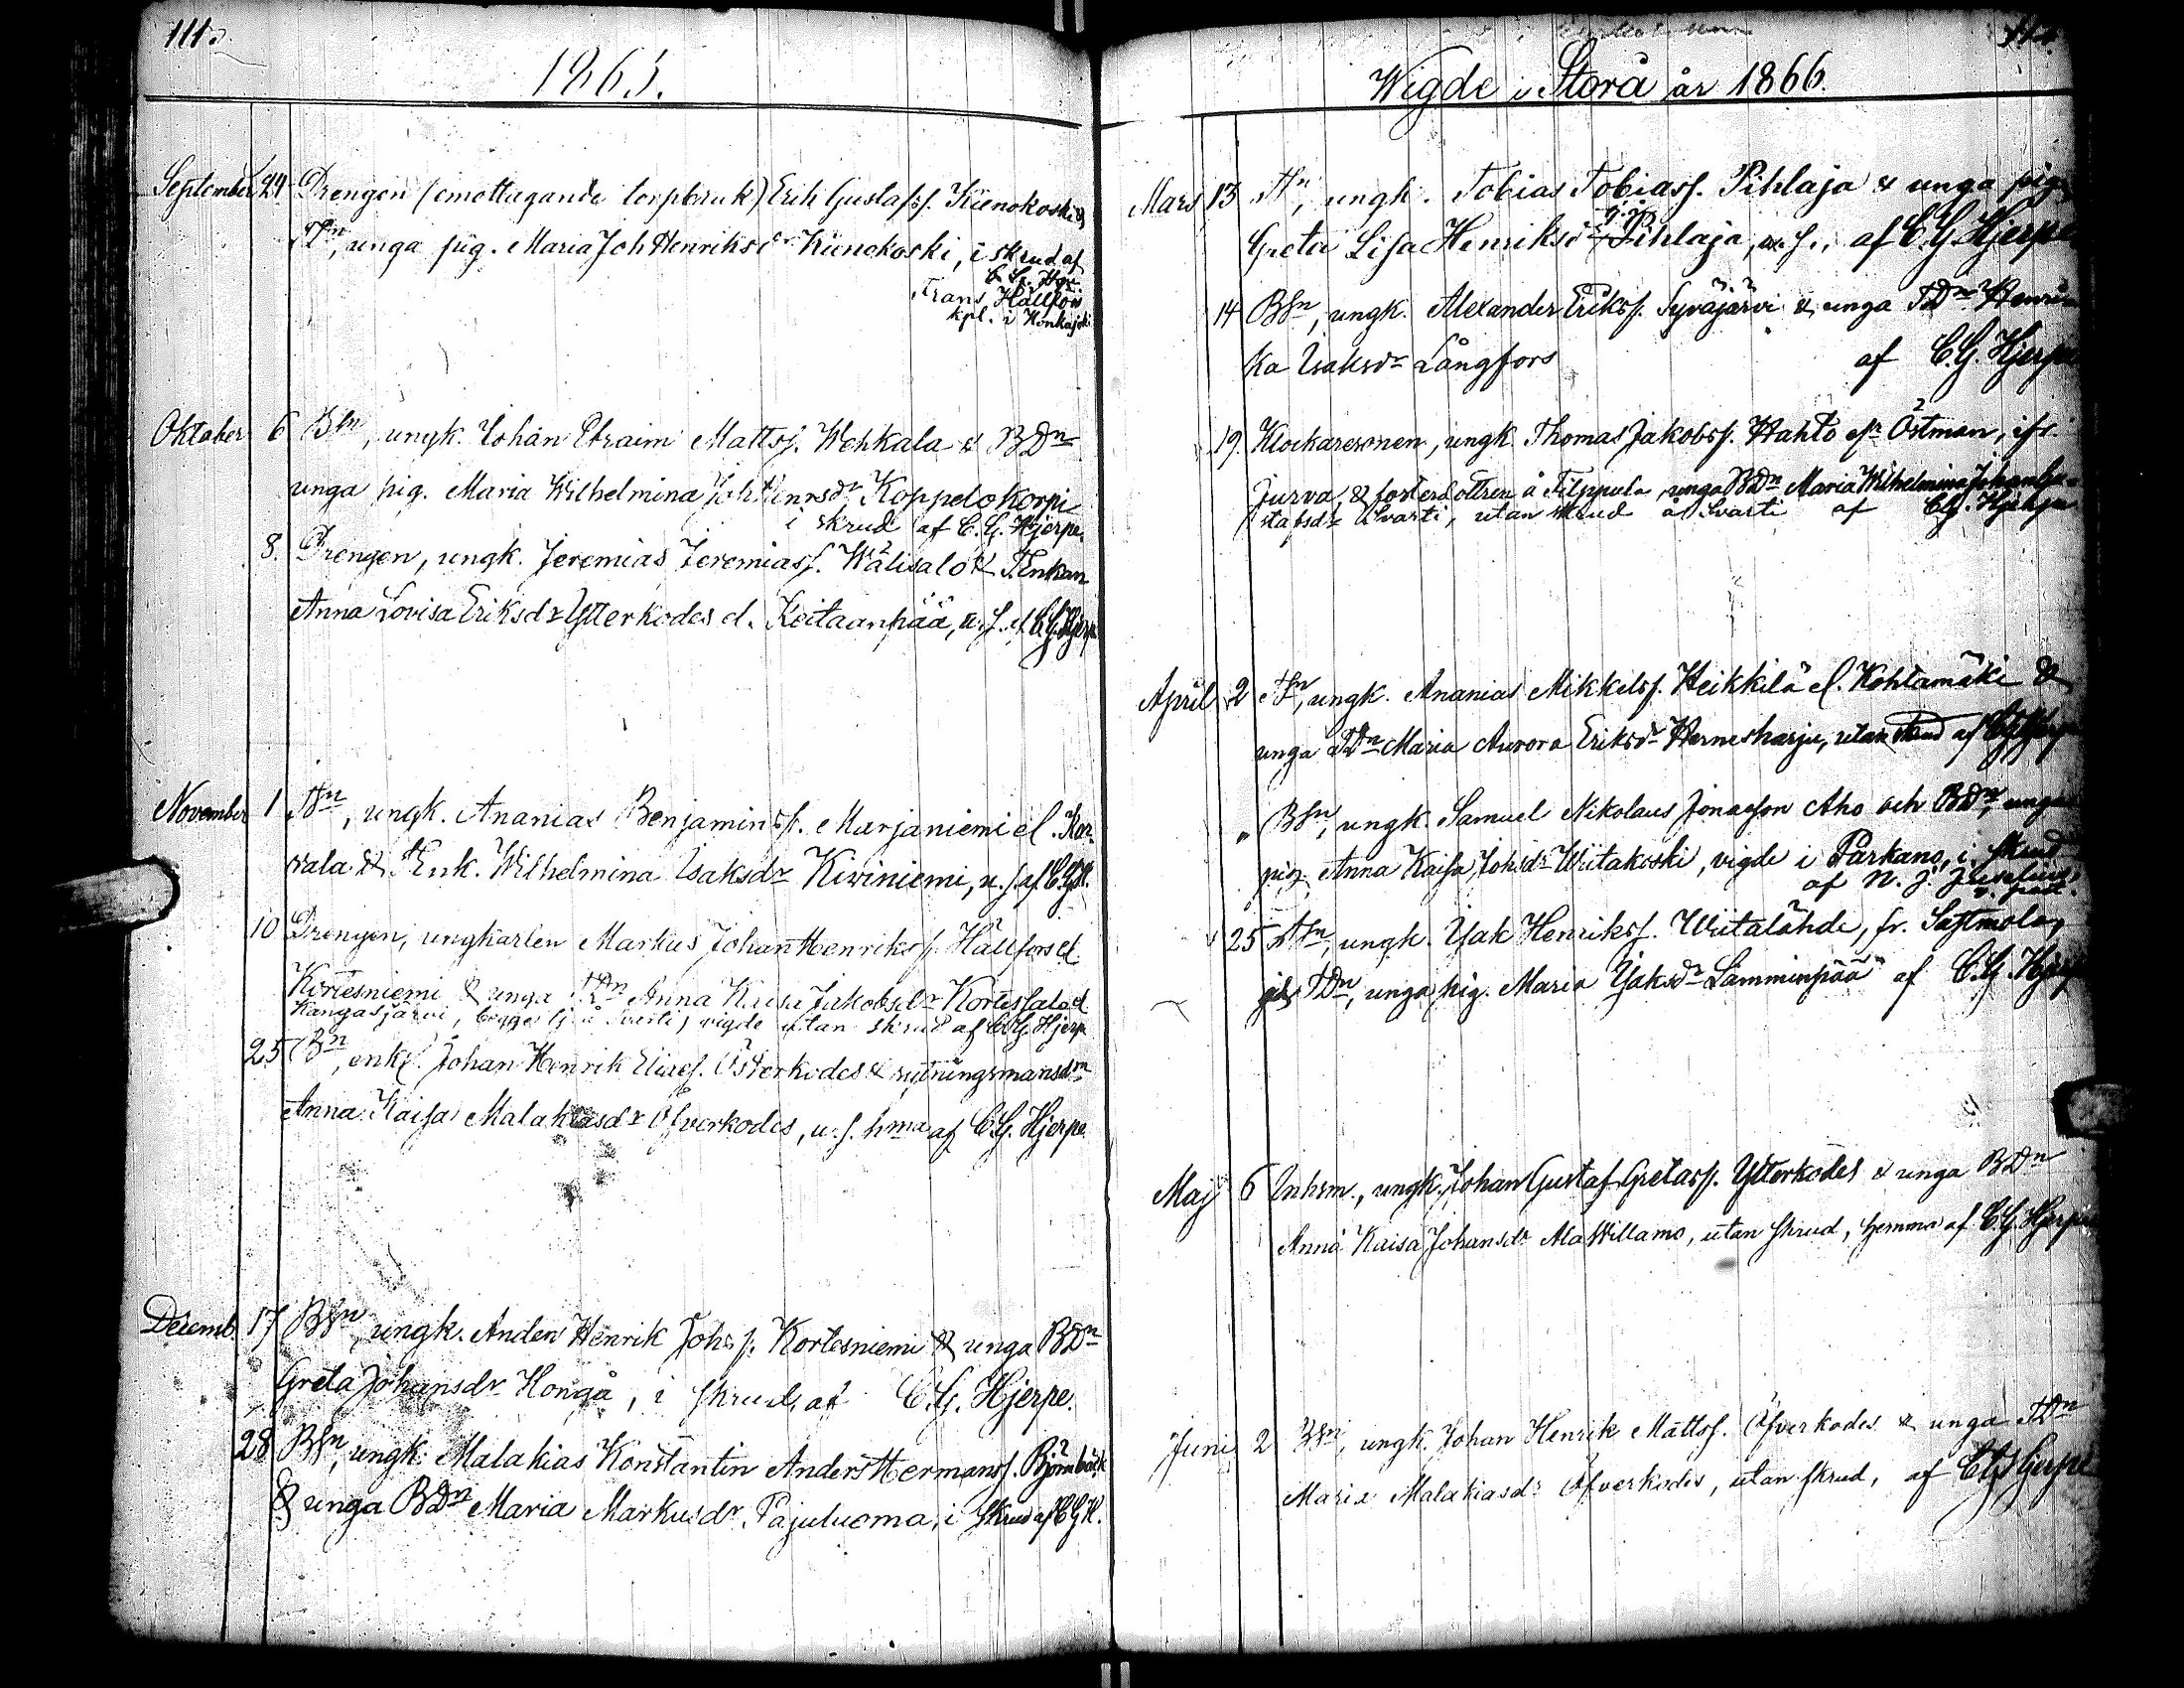 111.
1865.
September 24 Drengen (emottagande torpbruk) Erik Gustafss. Kienokoski &
Tdn, unga pig. Maria Joh Henriksdr Kienokoski, i skrud af
Frans Hällfors
kpl. i Honkajoki
Oktober 6 BSn, ungk. Johan Efraim Mattss. Wehkala & BDn
unga pig. Maria Wilhelmina Joh Henrsdr Koppelokorpi
i skrud af C. G. Hjerpe.
8. Drengen, ungk. Jeremias Jeremiass. Wälisalo & T.Enkan
Anna Lovisa Eriksdr Ytterkodes el. Keitaanpää, u. s. af C G Hjerpe
November 1 TSn, ungk. Ananias Benjaminss. Marjaniemi el. Kor-
vala & T Enk. Wilhelmina Isaksdr Kiviniemi, u. s. af C.G.H.
10 Drengen, ungkarlen Markus Johan Henrikss. Hällfors el.
Kortesniemi & unga TDn Anna Kaisa Jakobsdr Kortessalo el
Kangasjärvi, begge fr. å Svarti, vigde utan skrud af C.G. Hjerpe
25 Bn, enkl. Johan Henrik Eliass. Österkodes & sytningsmansdn
Anna Kaisa Malakiasdr Öfverkodes, u. s. hma af C.G. Hjerpe
Decemb. 17 BSn, ungk. Anders Henrik Johs s. Kortesniemi & unga BDn
Greta Johansdr Hongå, i skrud, af C. G. Hjerpe.
28 BSn, ungk. Malakias Konstantin Anders Hermanss. Björnbäck
& unga BDn Maria Markusdr Pajuluoma, i skrud af C G H.
Wigde i Storå år 1866.
Mars 13 TSn, ungk. Tobias Tobiass. Pihlaja & unga pig.
Greta Lisa Henriksdr Pihlaja, u. s., af C. G. Hjerpe
14 BSn, ungk. Alexander Erikss. Syväjärvi & unga TDn Henrii-
ka Isaksdr Långfors af C. G. Hjerpe
19. Klockaresonen, ungk. Thomas Jakobss. Hahto el. Östman, ifr.
Jurva & fosterdottren å Filppula, unga BDn Maria Wilhelmina Johan Gu-
stafsdr Svarti, utan skrud å Svarti af C.G. Hjerpe
April 2 TSn, ungk. Ananias Mikkelss. Heikkilä el. Kohtamäki &
unga TDn Maria Aurora Eriksdr Herneskarju, utan skrud af C G Hjerpe
" BSn, ungk. Samuel Nikolaus Jonasson Aho och BDn, unga
pig. Anna Kaisa Johsdr Wiitakoski, vigde i Parkano, i skrud
af N. J.
25 TSn, ungk. Isak Henrikss. Wiitalähde, fr. Sastmola,
TDn, unga pig. Maria Isaksdr Lamminpää af C. G. Hjerpe
Maij 6 Inhsm., ungk. Johan Gustaf Gretass. Ytterkodes & unga BDn
Anna Kaisa Johansdr Ala Willamo, utan skrud, hemma af C. G. Hjerpe
Juni 2 BSn, ungk. Johan Henrik Mattss. Öfverkodes & unga TDn
Maria Malakiasdr Öfverkodes, utan skrud, af C G Hjerpe